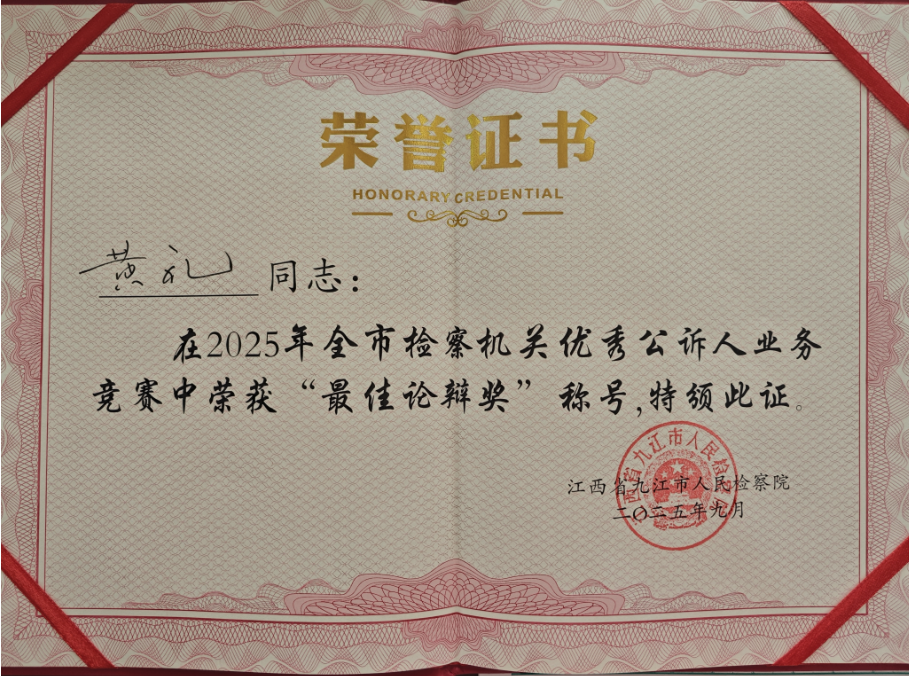 荣誉证书
HONORARY CREDENTIAL
黄礼 同志：
在2025年全市检察机关优秀公诉人业务
竞赛中荣获“最佳论辩奖”称号,特颁此证。
江西省九江市人民检察院
二〇二五年九月
江西省九江市人民检察院